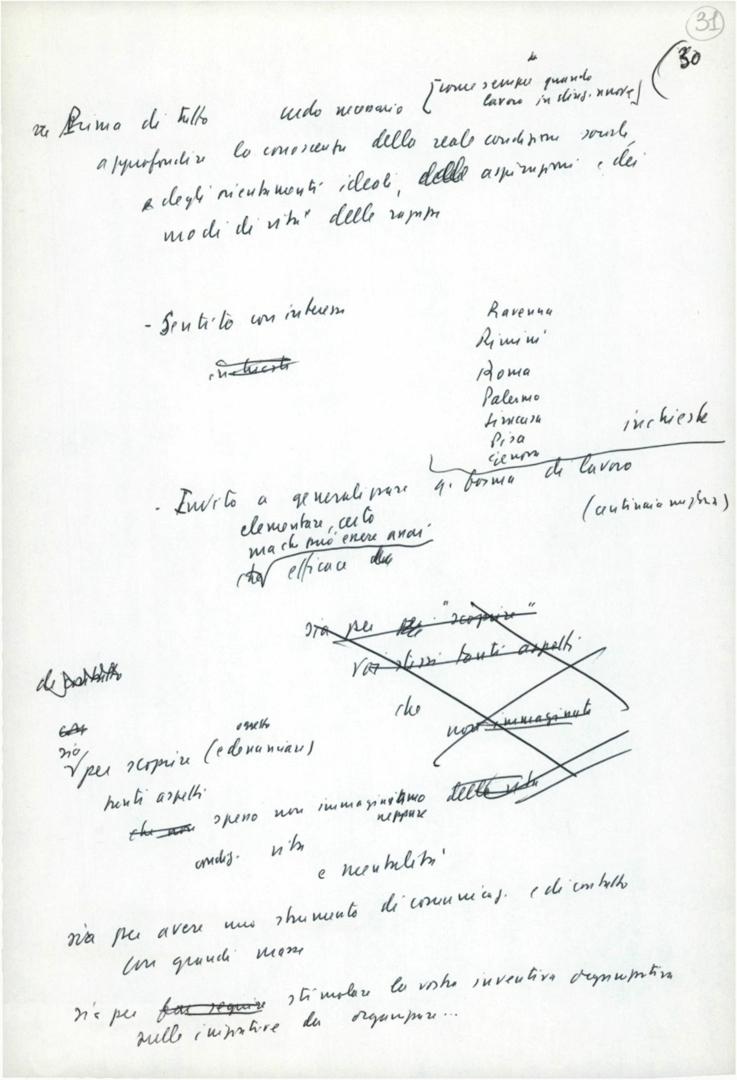 31
30
Prima di tutto credo necessario [come sempre quando
lavoro in direz. nuove]
approfondire la conoscenza della reale condizione sociale
e degli orientamenti ideali, delle aspirazioni e dei
modi di vita delle ragazze
- Sentito con interesse
inchieste
Ravenna
Rimini
Roma
Palermo
Siracusa
Pisa
Genova
inchieste
- Invito a generalizzare q. forma di lavoro
(centinaia migliaia)
elementare, certo
ma che può essere anzi
efficace
sia per "scoprire"
voi stessi tanti aspetti
che
non immaginate
della vita
sia
per scoprire (e denunciare)
tanti aspetti
che non spesso non immaginiamo
neppure
condiz. vita
e mentalità
sia per avere uno strumento di comunicaz. e di contatto
con grandi masse
sia per far seguire stimolare la vostra inventiva organizzativa
sulle iniziative da organizzare...